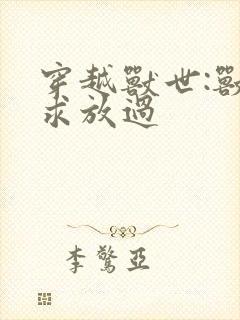 穿越獸世:獸
求放過
李驚亞